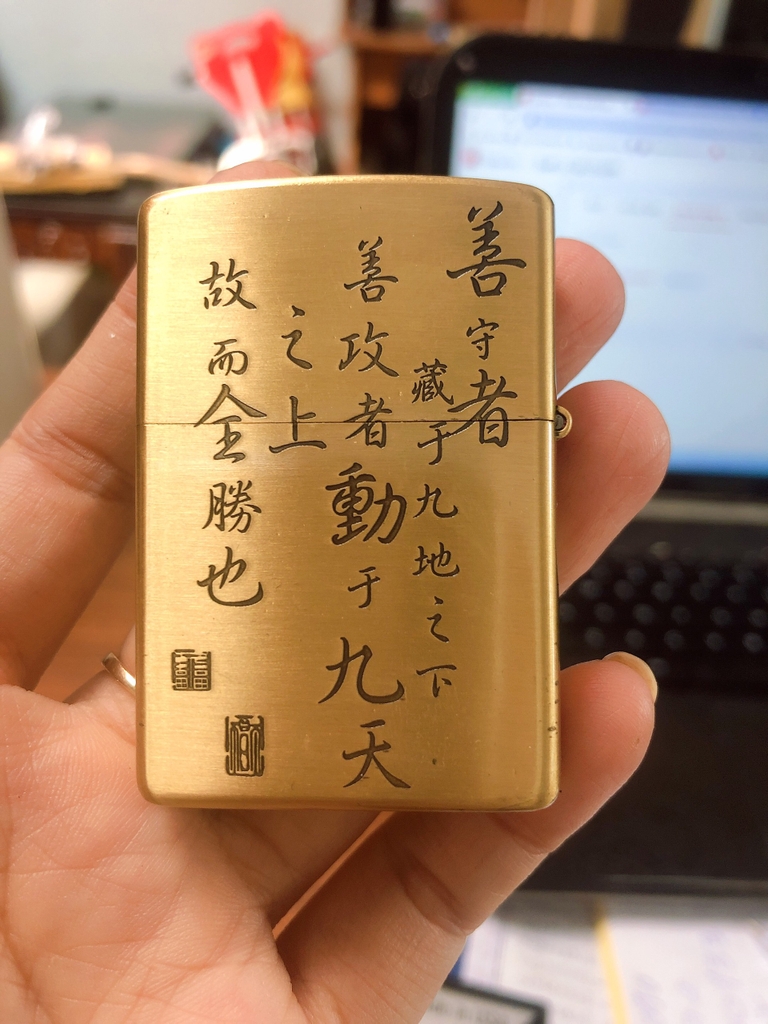 善守者
藏于九地之下
善攻者動于九天
之上
故而全勝也